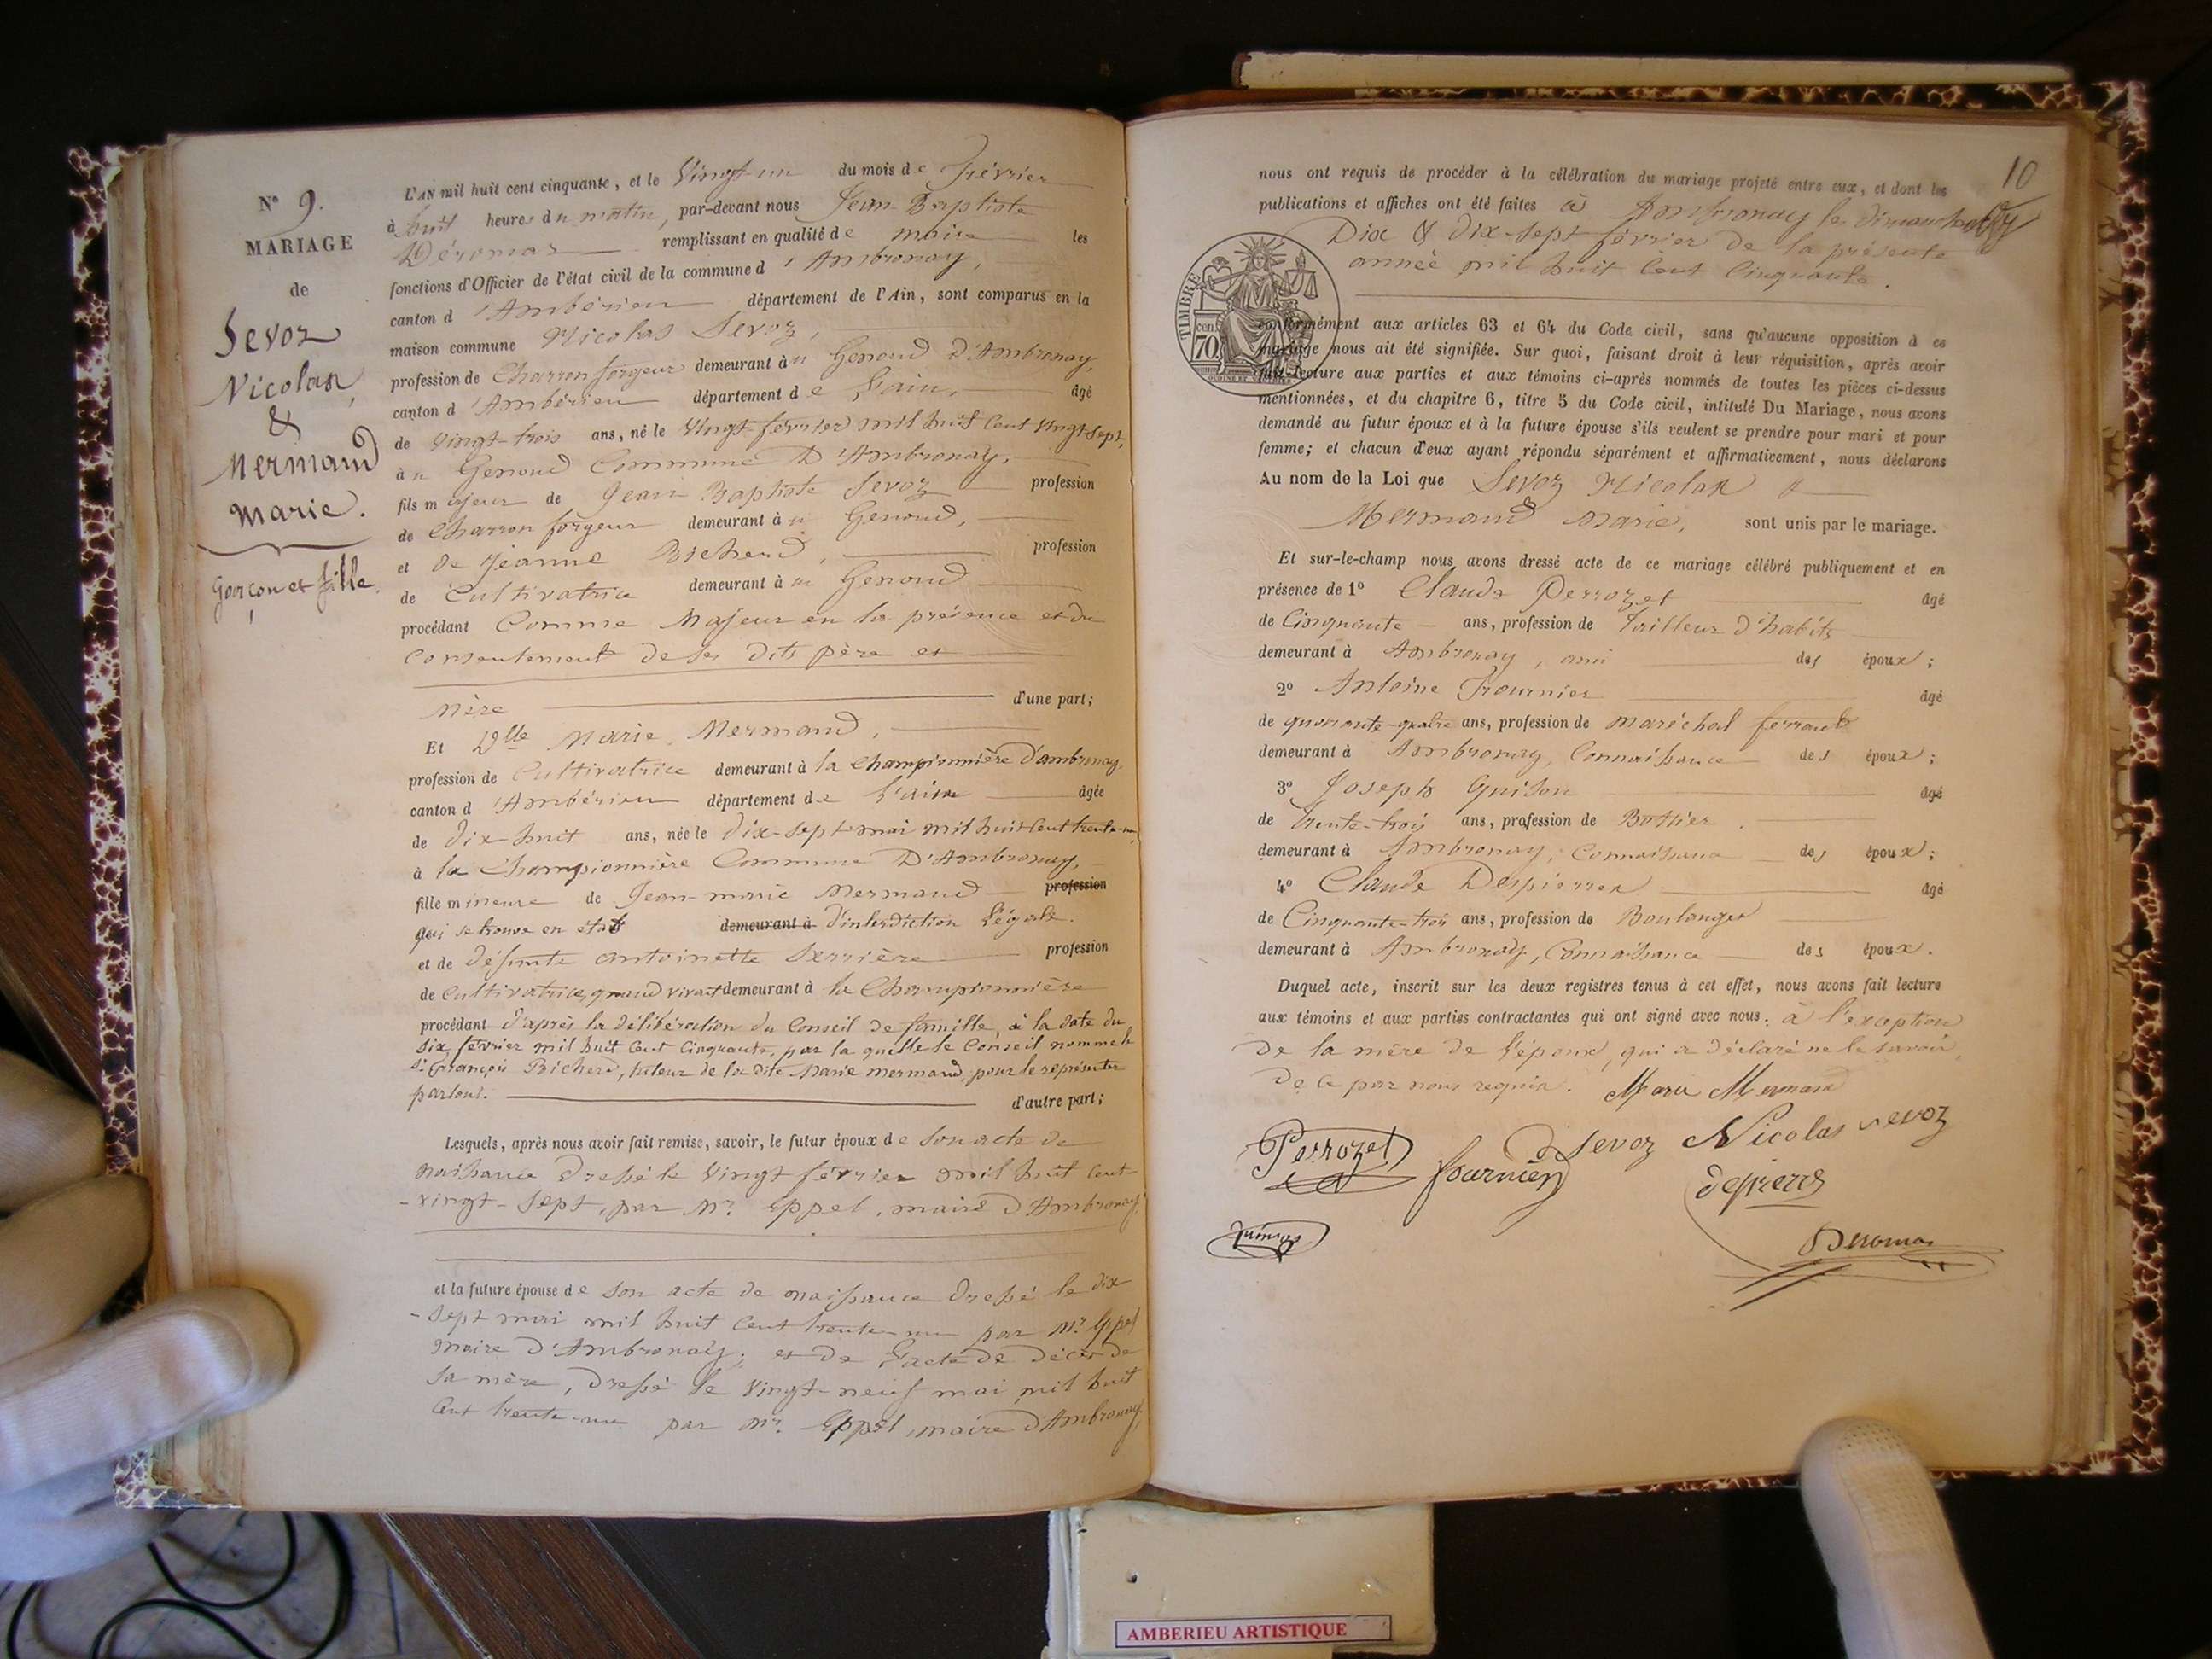 N° 9.
MARIAGE
de
Sevoz
Nicolas,
&
Mermand
Marie.
Garçon et fille.
L'AN mil huit cent cinquante, et le Vingt-un du mois de février
à huit heures du matin, par-devant nous Jean Baptiste
Déromas remplissant en qualité de maire les
fonctions d'Officier de l'état civil de la commune d'Ambronay,
canton d'Ambérieu département de l'Ain, sont comparus en la
maison commune Nicolas Sevoz,
profession de Charron forgeur demeurant à Genoud d'Ambronay,
canton d'Ambérieu département de L'ain, âgé
de Vingt-trois ans, né le Vingt février mil huit Cent Vingt-Sept,
à Genoud Commune D'Ambronay,
fils majeur de Jean Baptiste Sevoz profession
de Charron forgeur demeurant à Genoud,
et de Jeanne Bichend, profession
de Cultivatrice demeurant à Genoud
procédant Comme Majeur en la présence et du
Consentement de ses dits père et
Mère d'une part;
Et Dlle Marie Mermand,
profession de Cultivatrice demeurant à la Championnière d'ambronay,
canton d'Ambérieu département de L'ain âgée
de Dix-huit ans, née le Dix-sept mai mil huit Cent trente-un,
à la Championnière Commune D'Ambronay,
fille mineure de Jean-marie Mermand profession
qui se trouve en état demeurant à D'interdiction Légale.
et de Défunte Antoinette Serrière profession
de Cultivatrice, quand vivait demeurant à la Championnière
procédant D'après la Délibération du Conseil de famille, à la date du
Dix février mil huit Cent Cinquante, par la quelle le Conseil nomme le
Sr François Bichend, tuteur de la dite Marie Mermand, pour le représenter
partout. d'autre part;
Lesquels, après nous avoir fait remise, savoir, le futur époux de Son acte de
naissance Dressé le Vingt février mil huit Cent
-Vingt-Sept, par Mr. Eppel, maire D'Ambronay,
et la future épouse de Son acte de naissance Dressé le Dix
-Sept mai mil huit Cent trente-un par Mr. Eppel
maire D'Ambronay; et De L'acte De Décès de
Sa mère, Dressé le Vingt-neuf mai mil huit
Cent trente-un par Mr. Eppel, maire D'Ambronay,
10
nous ont requis de procéder à la célébration du mariage projeté entre eux, et dont les
publications et affiches ont été faites à Ambronay les Dimanches
Dix & Dix-Sept février de la présente
année mil huit Cent Cinquante.
TIMBRE
cent.
70
conformément aux articles 63 et 64 du Code civil, sans qu'aucune opposition à ce
mariage nous ait été signifiée. Sur quoi, faisant droit à leur réquisition, après avoir
fait lecture aux parties et aux témoins ci-après nommés de toutes les pièces ci-dessus
mentionnées, et du chapitre 6, titre 5 du Code civil, intitulé Du Mariage, nous avons
demandé au futur époux et à la future épouse s'ils veulent se prendre pour mari et pour
femme; et chacun d'eux ayant répondu séparément et affirmativement, nous déclarons
Au nom de la Loi que Sevoz Nicolas &
Mermand Marie, sont unis par le mariage.
Et sur-le-champ nous avons dressé acte de ce mariage célébré publiquement et en
présence de 1° Claude Perrozet âgé
de Cinquante ans, profession de Tailleur D'habits
demeurant à Ambronay, ami des époux;
2° Antoine Fournier âgé
de quarante-quatre ans, profession de Maréchal ferrant
demeurant à Ambronay, Connaissance des époux;
3° Joseph Guison âgé
de Trente-trois ans, profession de Bottier.
demeurant à Ambronay, Connaissance des époux;
4° Claude Despierres âgé
de Cinquante-trois ans, profession de Boulanger
demeurant à Ambronay, Connaissance des époux.
Duquel acte, inscrit sur les deux registres tenus à cet effet, nous avons fait lecture
aux témoins et aux parties contractantes qui ont signé avec nous. à l'exception
De la mère de L'époux, qui a déclaré ne le savoir,
De ce par nous requis. Marie Mermand
Perrozet fournier Sevoz Nicolas Sevoz
depierre
Deromas
AMBERIEU ARTISTIQUE